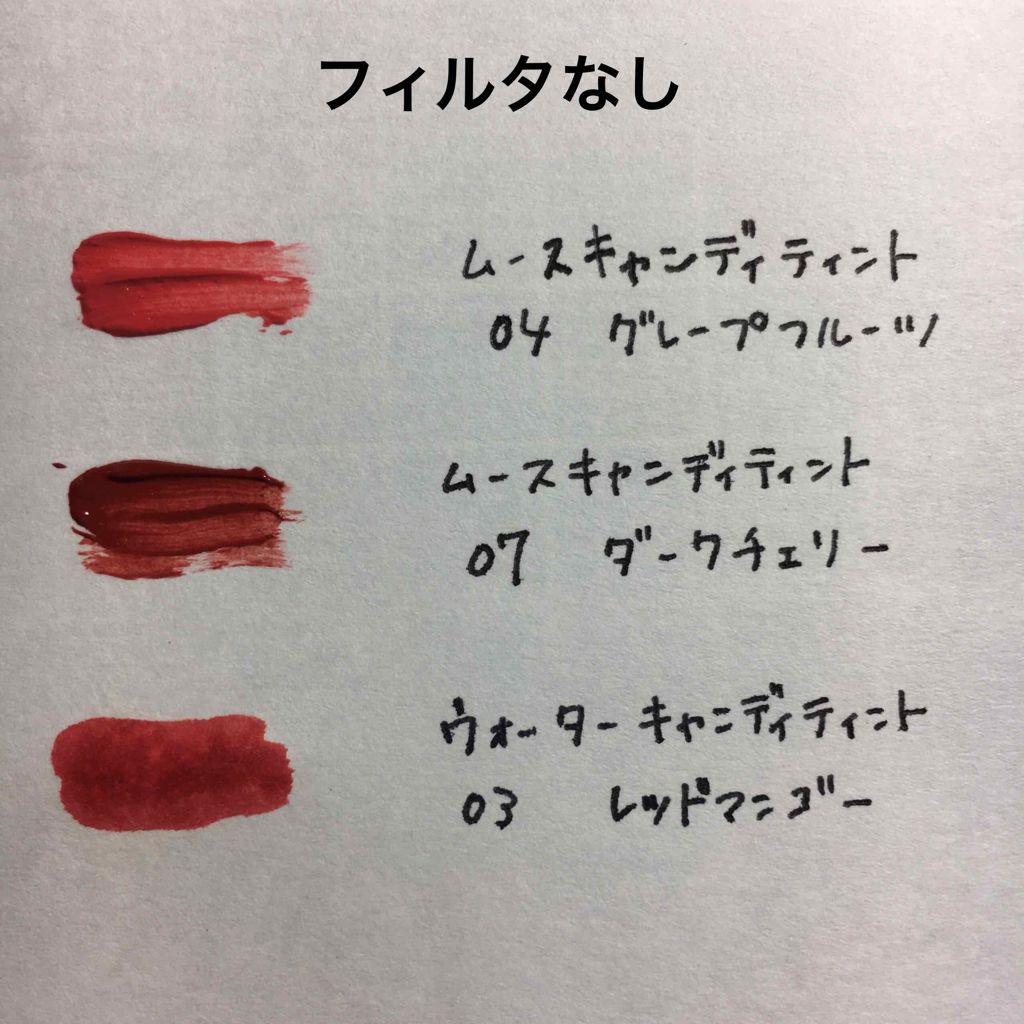 フィルタなし
ムースキャンディティント
04 グレープフルーツ
ムースキャンディティント
07 ダークチェリー
ウォーターキャンディティント
03 レッドマンゴー